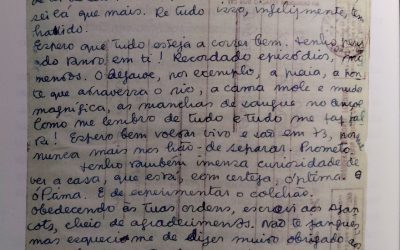 sei lá que mais. Re tudo isso, infelizmente, tem
havido.
Espero que tudo esteja a correr bem. Tenho pen
do tanto em ti! Recordado episódios,
menores. O desfave, por exemplo, a praia, a pon
te que atravessa o rio, a cama mole e
magnífica, as manchas de sangue no
Como me lembro de tudo e tudo me faz fal
ta! Espero bem voltar vivo e são em 73,
nunca mais nos hão-de separar. Prometo
Tenho também imensa curiosidade de
ver a casa, que está, com certeza, óptima. e
óptima. E de experimentar o colchão.
obedecendo às tuas ordens, escrevi aos
cots, cheio de agradecimentos. Não te zangues,
mas esqueci-me de dizer muito obrigado